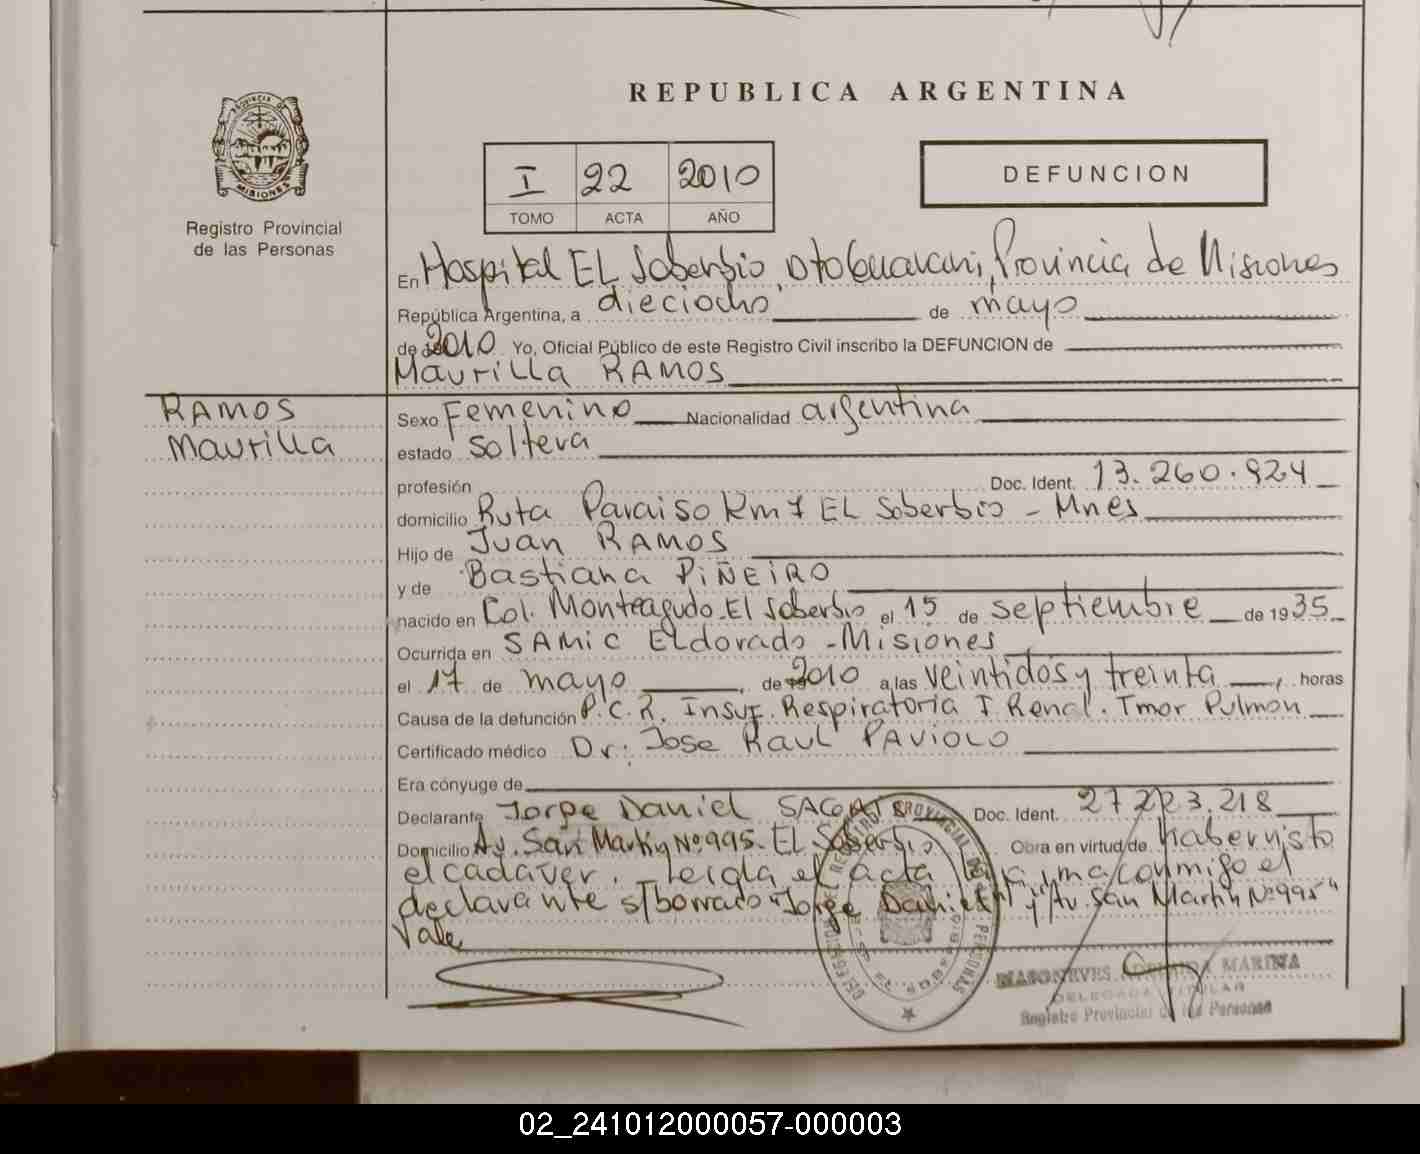 REPUBLICA ARGENTINA
PROVINCIA DE
MISIONES
Registro Provincial
de las Personas
I 22 2010
TOMO ACTA AÑO
DEFUNCION
En Hospital EL Soberbio, Dto Guarani, Provincia de Misiones
República Argentina, a dieciocho de mayo
de 2010 Yo, Oficial Público de este Registro Civil inscribo la DEFUNCION de
Maurilla RAMOS
RAMOS
Maurilla
Sexo Femenino Nacionalidad argentina
estado soltera
profesión Doc. Ident. 13.260.924
domicilio Ruta Paraiso Km 7 EL Soberbio - Mnes
Hijo de Juan RAMOS
y de Bastiana PIÑEIRO
nacido en Col. Monteagudo - El Soberbio el 15 de septiembre de 1935
Ocurrida en SAMIC Eldorado - Misiones
el 17 de mayo de 2010 a las veintidos y treinta, horas
Causa de la defunción P.C.R. Insuf. Respiratoria I Renal. Tmor Pulmon
Certificado médico Dr: Jose Raul PAVIOLO
Era cónyuge de
Declarante Jorge Daniel Doc. Ident. 27.223.218
Domicilio Av. San Martin Nº 995. EL Soberbio Obra en virtud de haber visto
el cadáver. Leida el acta la firma conmigo el
declarante s/borrado "Jorge Daniel" y "Av. San Martin Nº 995"
Vale
REGISTRO PROVINCIAL DE LAS PERSONAS
MARINA
DELEGADA TITULAR
Registro Provincial de las Personas
02_241012000057-000003